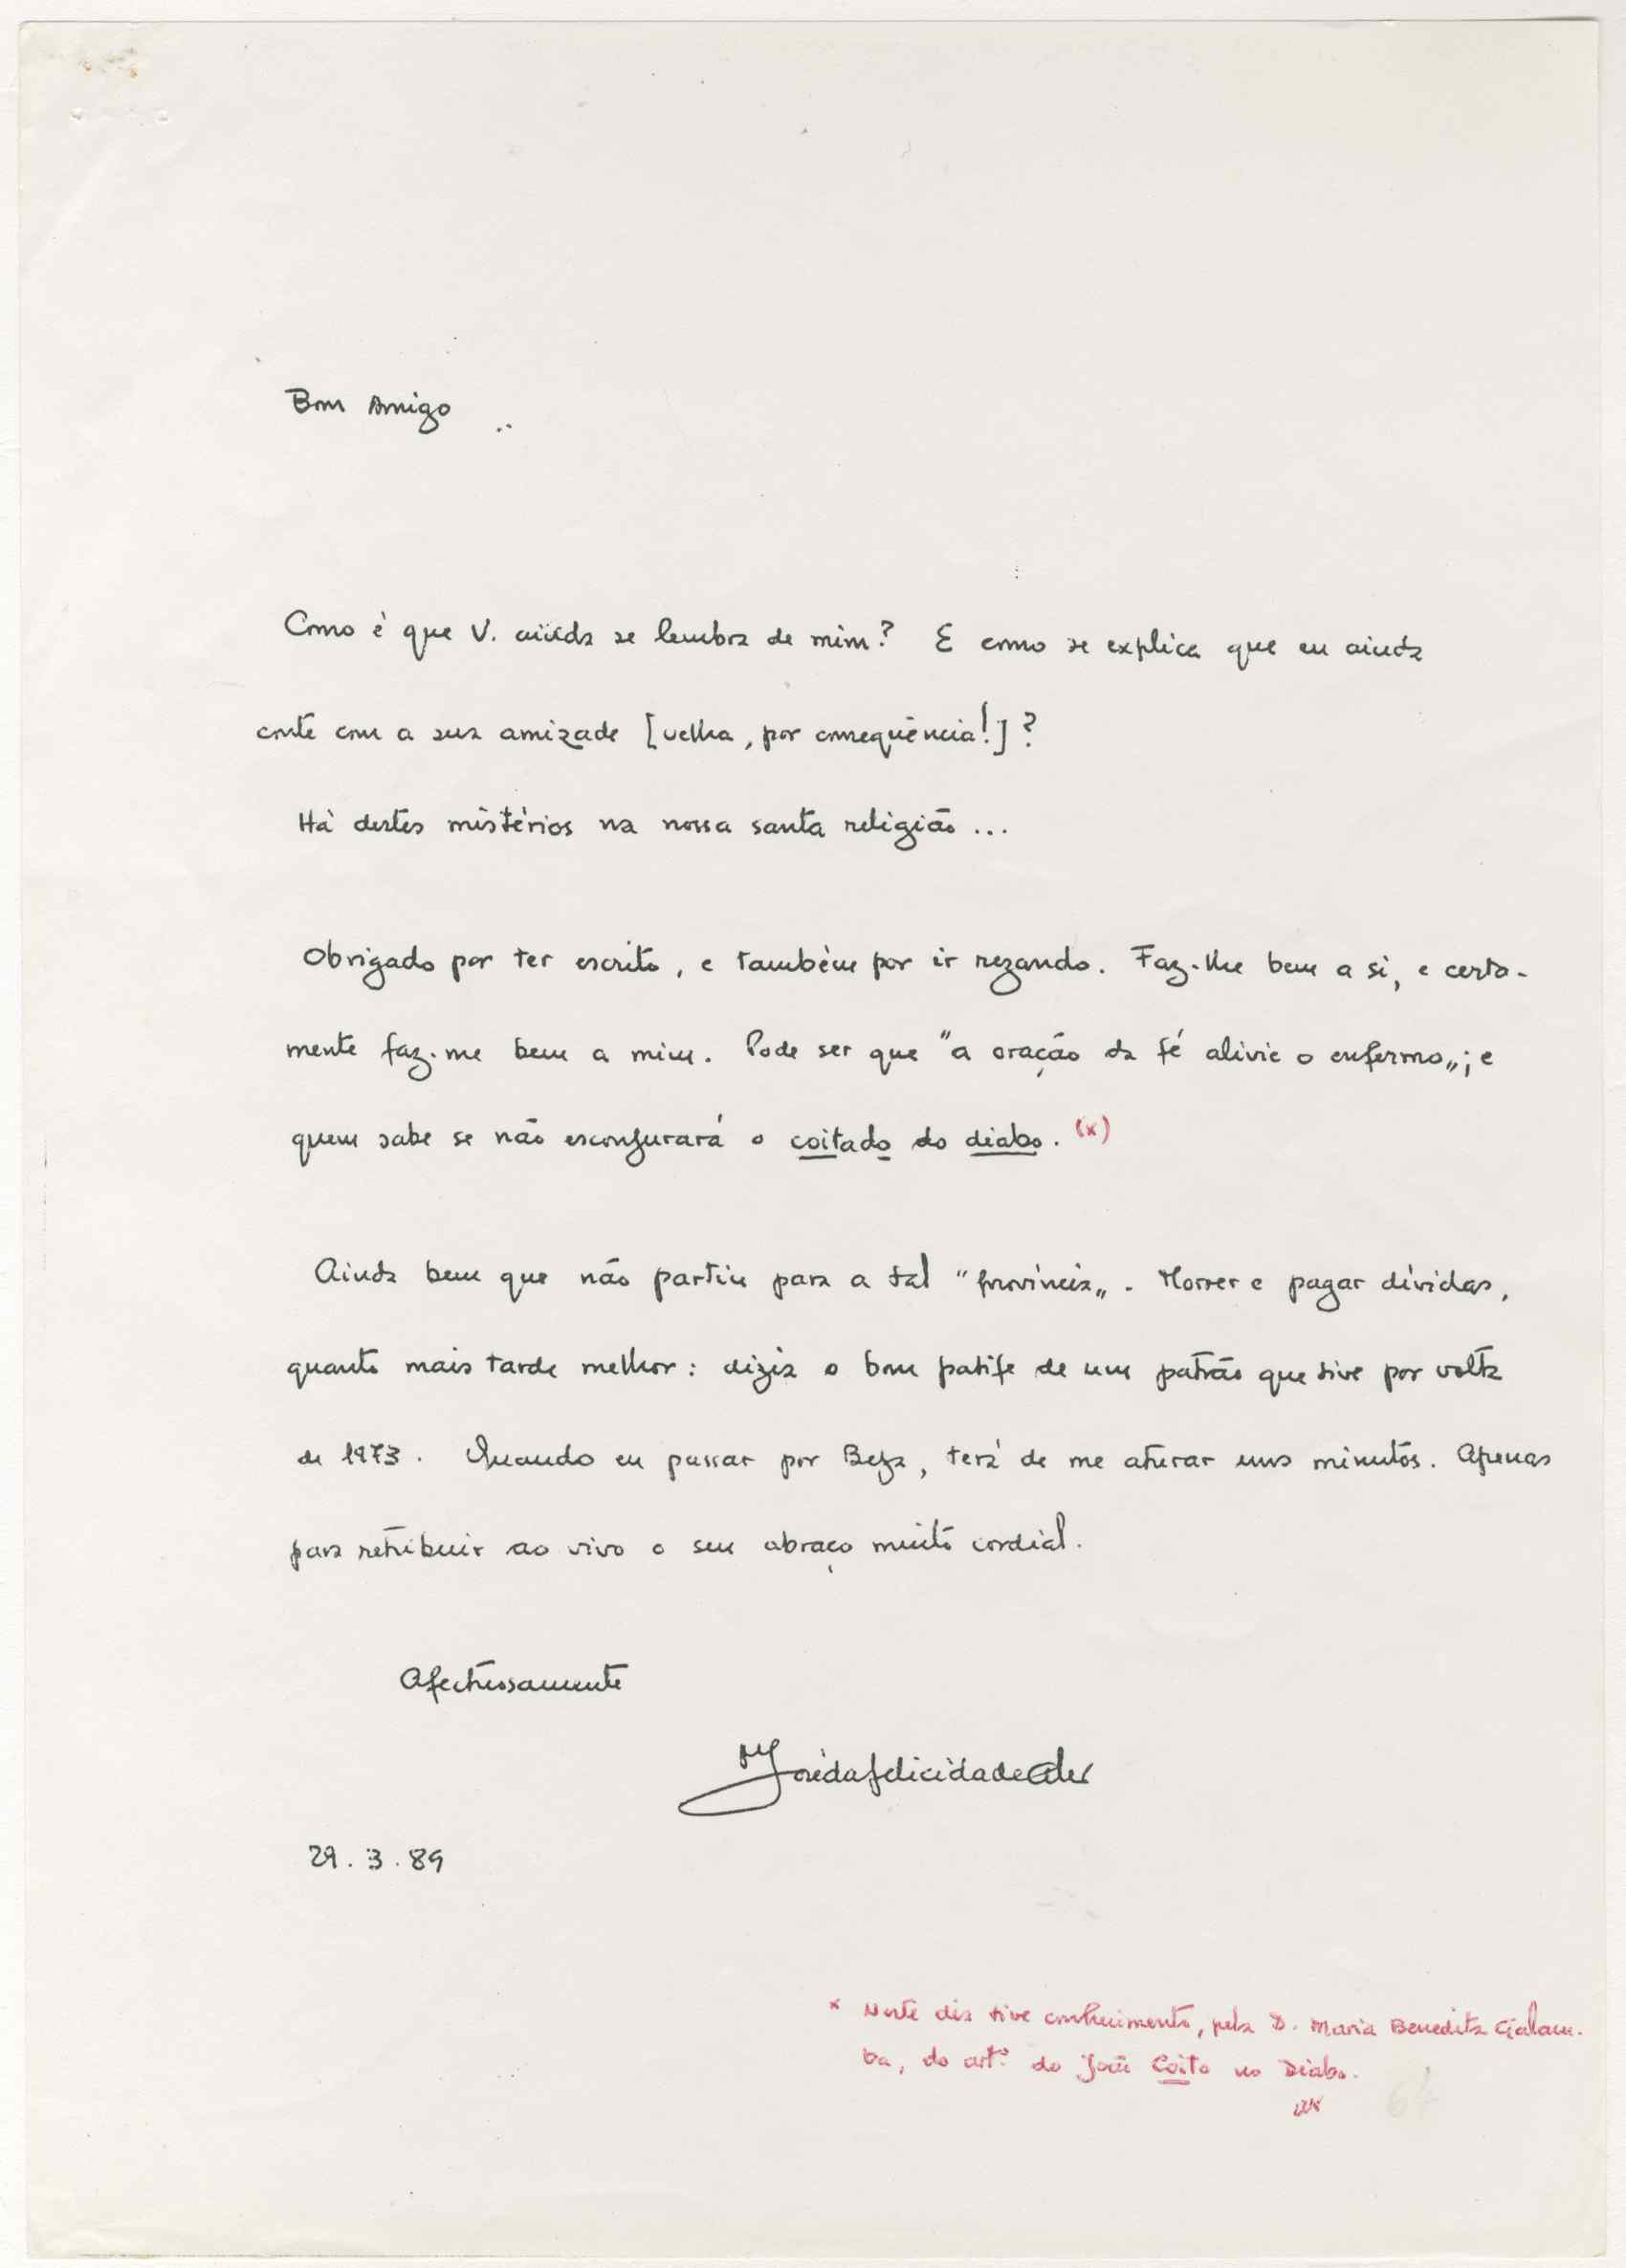 Bom Amigo
Como é que V. ainda se lembra de mim? E como se explica que eu ainda
conte com a sua amizade [velha, por consequência!]?
Há destes mistérios na nossa santa religião...
Obrigado por ter escrito, e também por ir rezando. Faz-lhe bem a si, e certa-
mente faz-me bem a mim. Pode ser que "a oração da fé alivie o enfermo„; e
quem sabe se não esconjurará o coitado do diabo. (x)
Ainda bem que não partiu para a tal "província„. Morrer e pagar dívidas,
quanto mais tarde melhor: dizia o bom patife de um patrão que tive por volta
de 1973. Quando eu passar por Beja, terá de me aturar uns minutos. Apenas
para retribuir ao vivo o seu abraço muito cordial.
Afectuosamente
JosédafelicidadeAlves
29.3.89
x Neste dia tive conhecimento, pela D. Maria Benedita Galam-
ba, do artº do João Coito no Diabo.
64